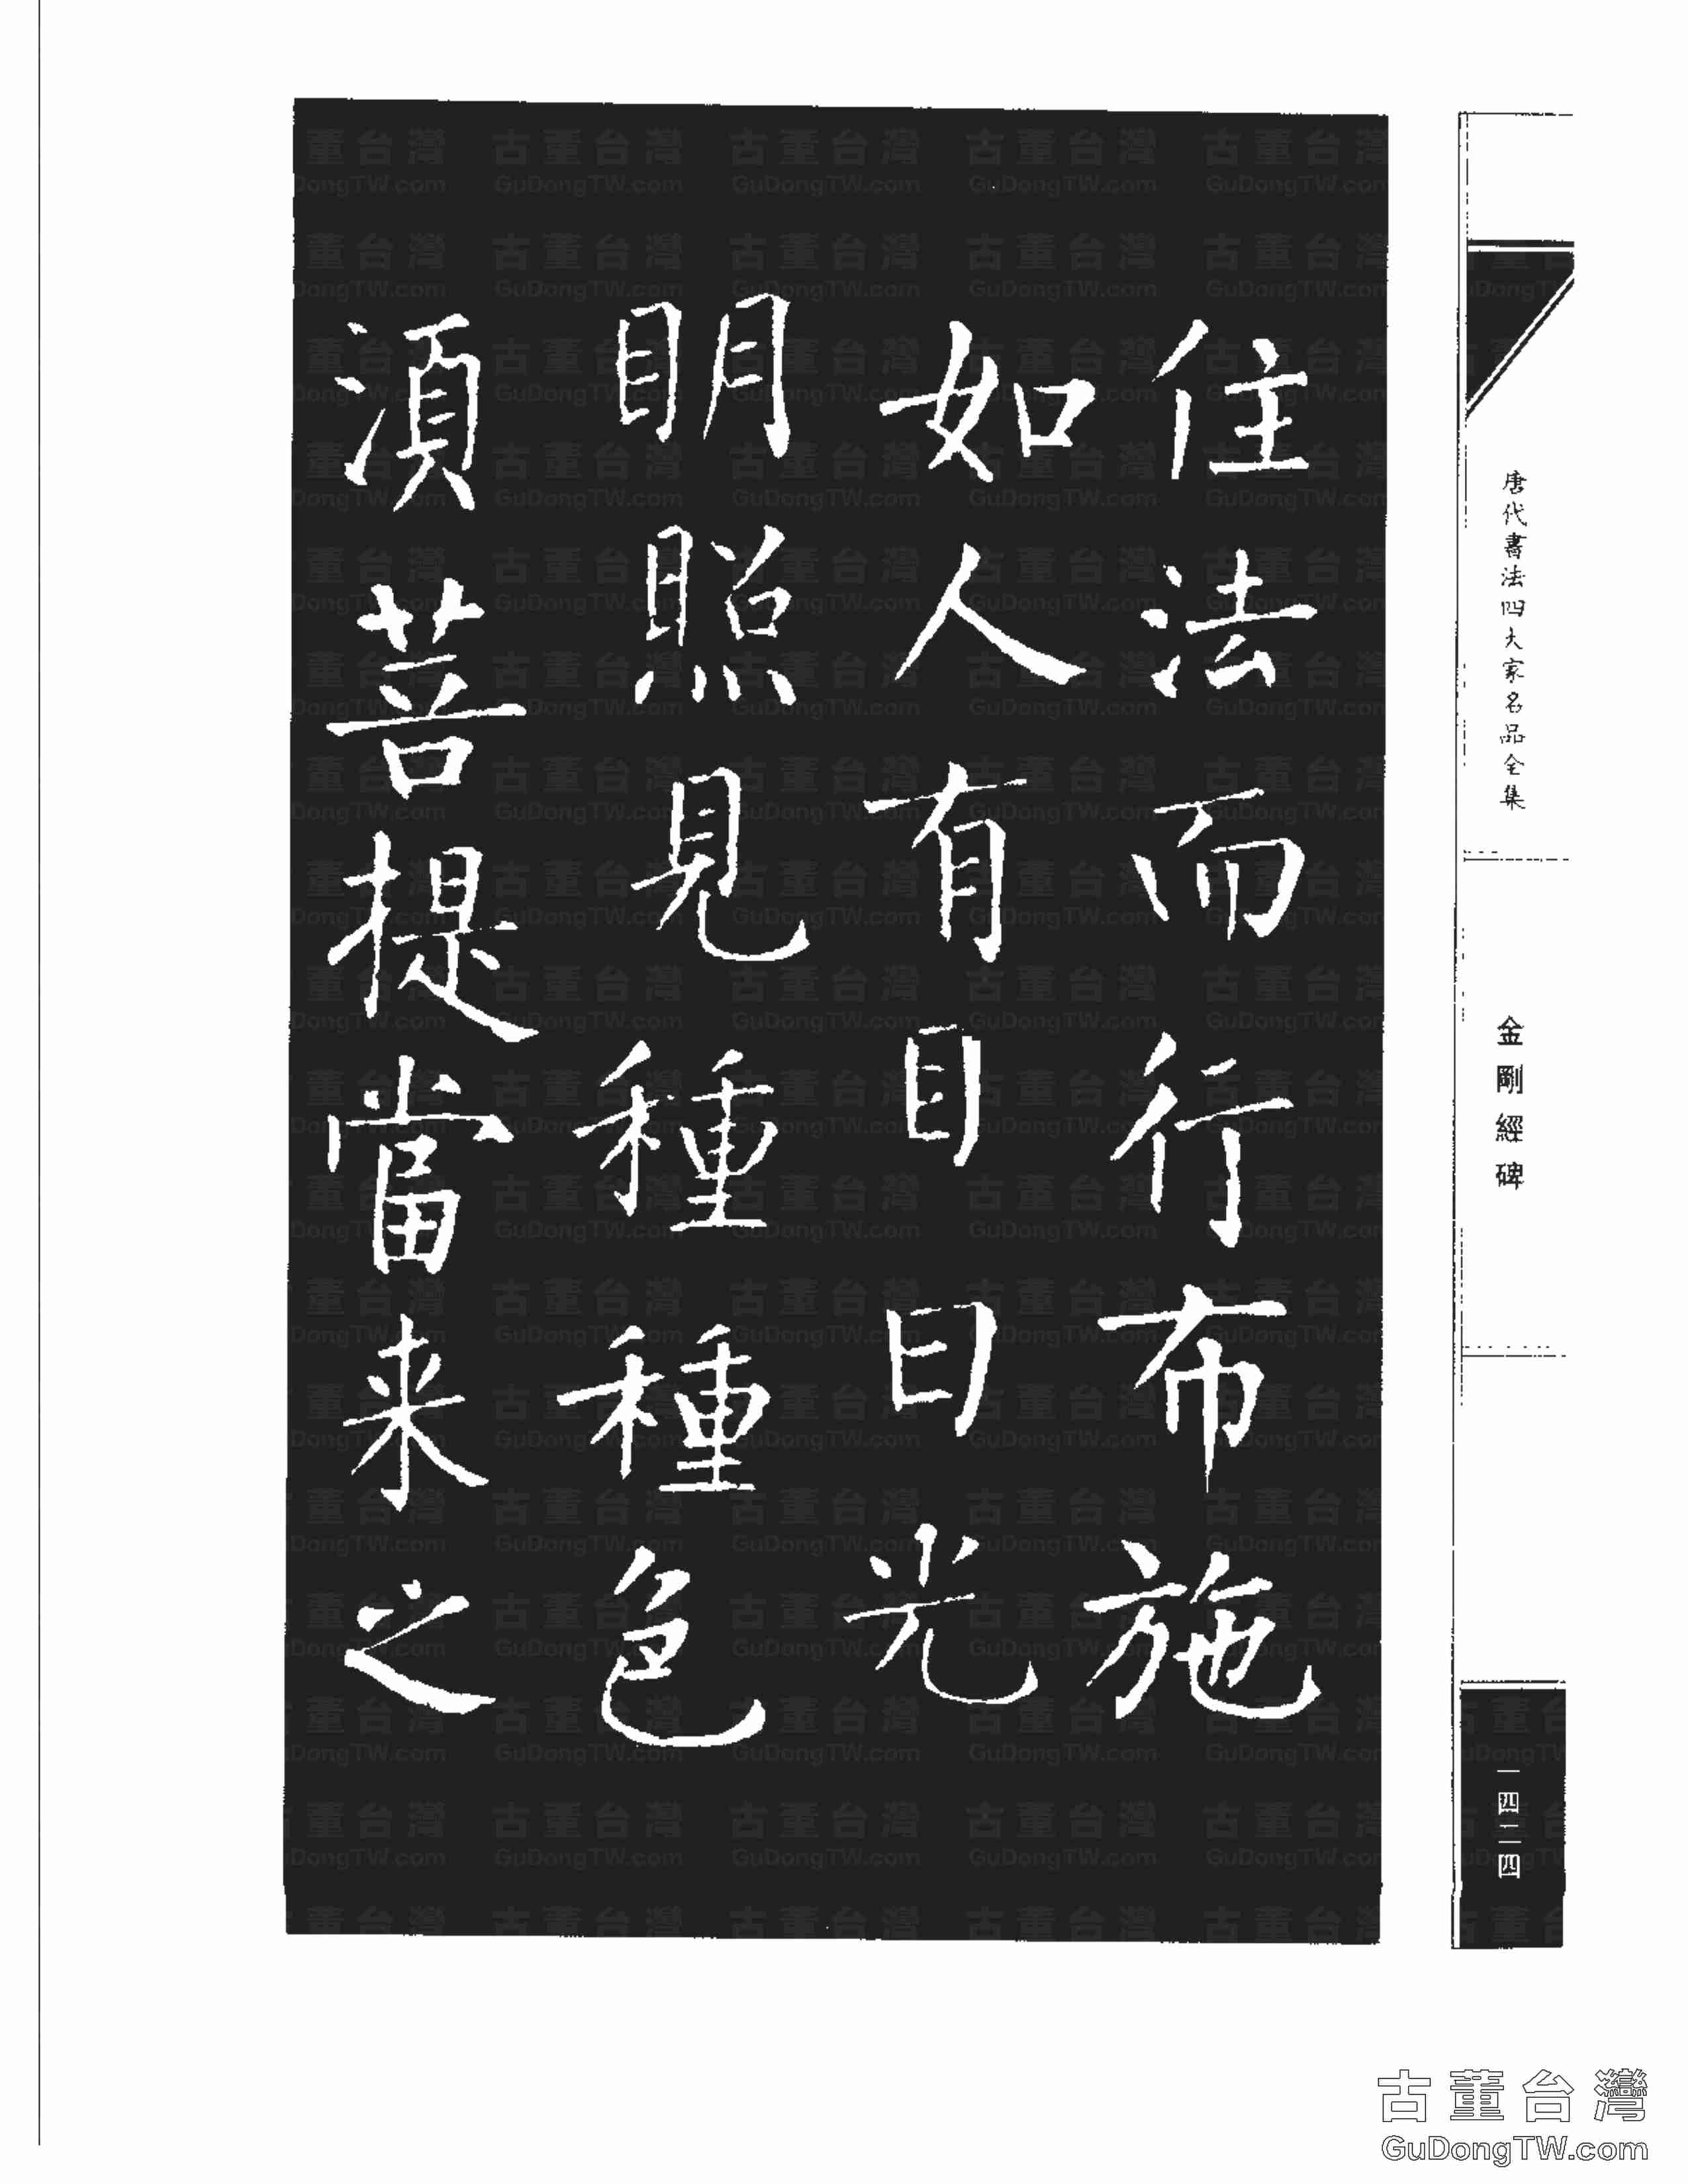 住法而行布施
如人有目日光
明照見種種色
須菩提當来之
唐代書法四大家名品全集
金剛經碑
一四二四
古董台灣
GuDongTW.com